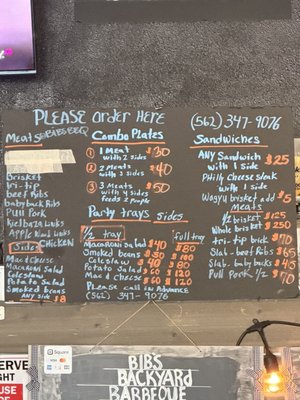 PLEASE Order HERE
(562) 347-9076
Meat
Brisket
tri-tip
beef Ribs
baby back Ribs
Pull Pork
Kielbasa Links
Links
CHICKEN
Sides
Mac & Cheese
Macaroni Salad
Coleslaw
Potato Salad
Smoked Beans
Any Side $8
Combo Plates
① 1 Meat $30
with 2 Sides
② 2 Meats $40
with 3 Sides
③ 3 Meats $50
with 4 Sides
feeds 2 People
Party trays Sides
1/2 tray full tray
Macaroni Salad $40 $80
Smoked Beans $50 $100
Coleslaw $40 $80
Potato Salad $60 $120
Mac & Cheese $60 $120
Please Call in Advance
(562) 347-9076
Sandwiches
ANY Sandwich $25
with 1 Side
Philly Cheese Steak
with 1 side
Wagyu brisket add $5
Meats
1/2 brisket $125
Whole brisket $250
tri-tip $70
Slab-beef Ribs $65
Slab-baby backs $45
Pull Pork 1/2 $70
Square
VISA
BIB'S
BACKYARD
BARBEQUE
RESERVE
RIGHT
USE